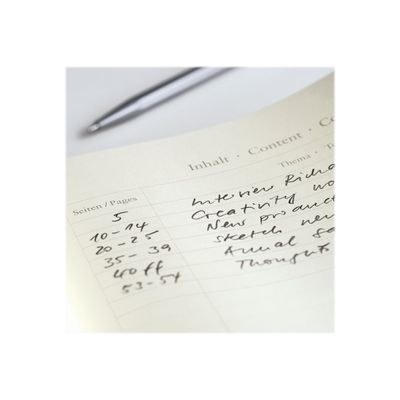 Inhalt · Content · Co
Seiten / Pages Thema · To
5 Interview Richa
10-14 Creativity wo
20-25 New product
35-39 sketch new
40 ff Annual Sa
53-54 Thoughts